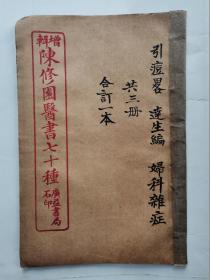 增輯
陳修園醫書七十種
廣益書局
石印
引痘畧 達生編 婦科雜症
共三册
合訂一本